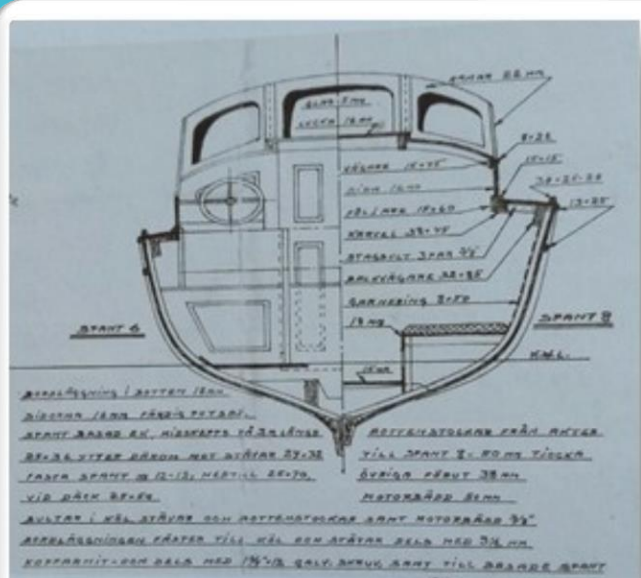 RAMAR 22 MM
GLAS 5 MM
LUCKA 16 MM
8×22
VÄGARE 15×45
15×15
SIDA 16 MM
30×25-20
FÖLJARE 15×60
13×25
KARVEL 38×45
STAGBULT 3 PAR 3/8"
BALKVÄGARE 32×85
GARNERING 8×50
SPANT 6
18 MM
SPANT 8
15 MM
K.V.L.
BORDLÄGGNING I BOTTEN 18 MM
SIDORNA 16 MM FÄRDIG TJOCKL.
SPANT BASAD EK, MIDSKEPPS PÅ 3 M LÄNGD
DÄROM MOT STÄVAR
FASTA SPANT 12-13, NEDTILL 25×70
VID DÄCK
BOTTENSTOCKAR FRÅN AKTER
TILL SPANT 8 = 50 MM TJOCKA
ÖVRIGA FÖRUT 38 MM
MOTORBÄDD 50 MM
BULTAR I KÖL STÄVAR OCH BOTTENSTOCKAR SAMT MOTORBÄDD 3/8"
BORDLÄGGNINGEN FÄSTES TILL KÖL OCH STÄVAR DELS MED MM
KOPPARNIT- OCH DELS MED GALV. SKRUV, SAMT TILL BASADE SPANT